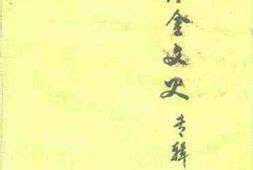 金文史专辑